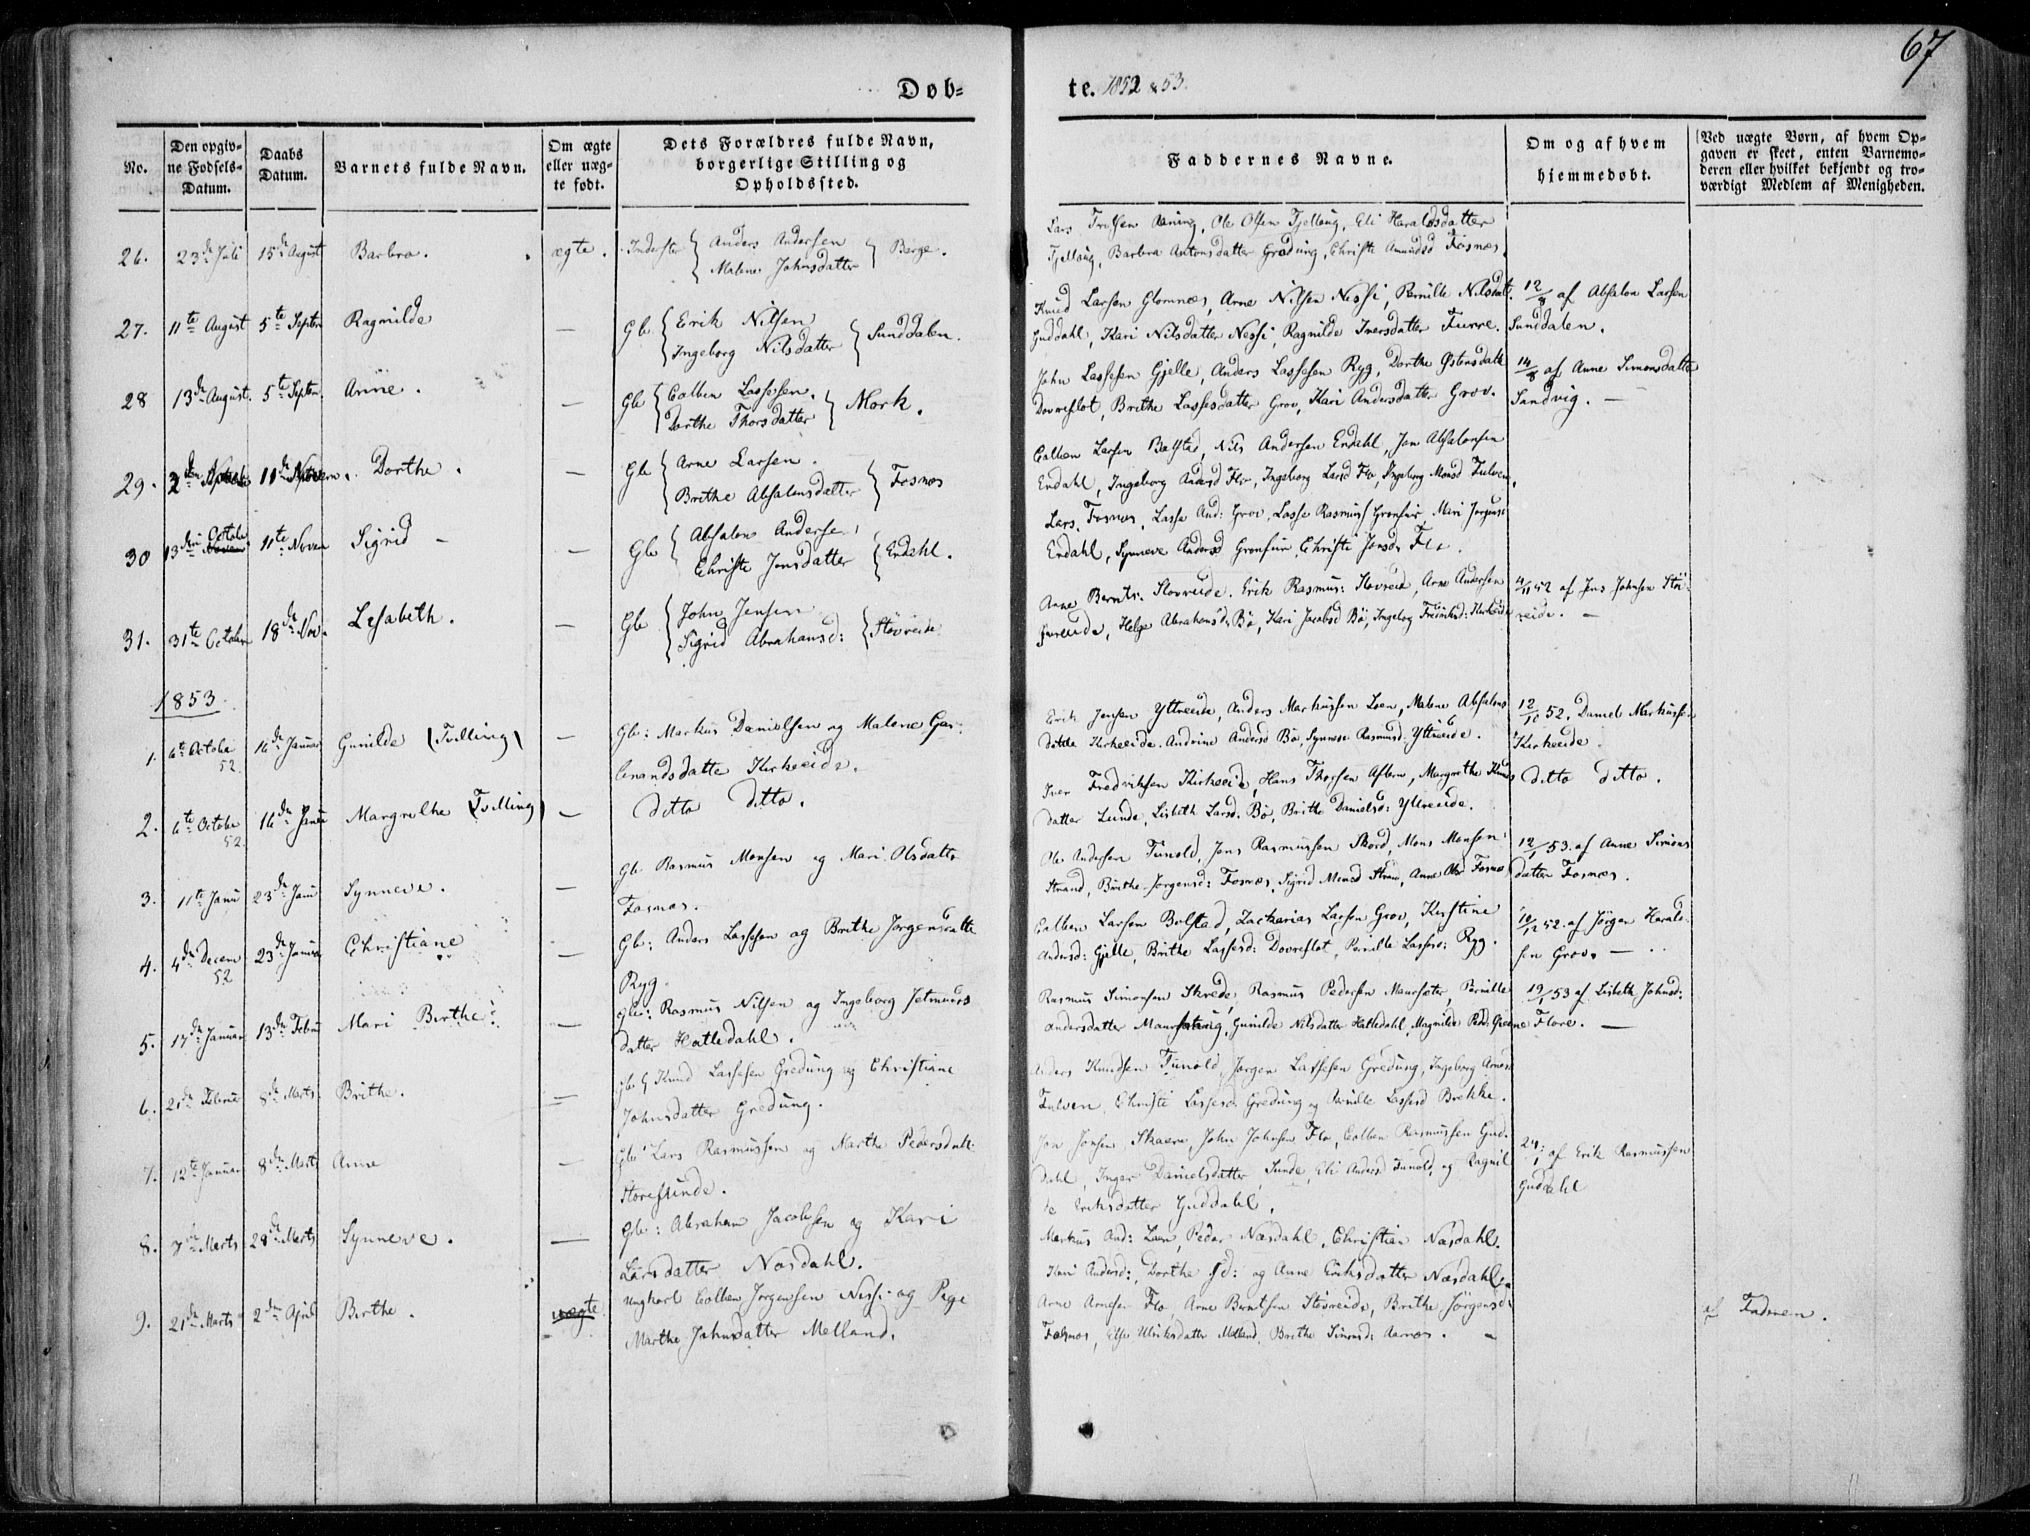 67
Døb- te. 1852 & 53.
No.
Den opgiv-
ne Fødsels-
Datum.
Daabs
Datum.
Barnets fulde Navn.
Om ægte
eller uæg-
te født.
Dets Forældres fulde Navn,
borgerlige Stilling og
Opholdssted.
Faddernes Navne.
Om og af hvem
hjemmedøbt.
Ved uægte Børn, af hvem Op-
gaven er skeet, enten Barnemo-
deren eller hvilket bekjendt og tro-
værdigt Medlem af Menigheden.
26. 23de Juli 15de August Barbra. ægte. Inderster Anders Andersen Malene Johnsdatter Berge.
Lars Ole Olsen Tjellaug, Eli Haraldsdatter
Tjellaug, Barbra Antonsdatter Gredung, Christi Amundsd Fosnæs.
27. 11te August 5te Septbr Ragnilde — Gb Erik Nilsen Ingeborg Nilsdatter Sunddalen.
Knud Larsen Glomnes, Arne Nilsen Nessi, Pernille Nilsdatt. 12/8 af Absalon Larsen
Guddahl, Kari Nilsdatter Nessi, Ragnilde Iversdatter Furre. Sunddalen.
28 13de August. 5te Septbr. Anne. — Gb Colben Lassesen. Dorthe Thorsdatter Mork.
John Lassesen Gjelle, Anders Lassesen Ryg, Dorthe Østensdatt 14/8 af Anne Simonsdatte
Dovreflot, Brithe Lassesdatter Grov, Kari Andersdatter Grov. Sandvig. —
29. 2den 11te Novem. Dorthe. — Gb Arne Larsen. Brithe Absalonsdatter Fosnæs
Colben Larsen Bolstad, Nils Andersen Endahl, Jon Absalonsen
Endahl, Ingeborg Andersd Flo, Ingeborg Larsd Flo, Ingeborg Monsd Tulven.
30 13den Octobe 11te Novem Sigrid — — Gb Absalon Andersen Christi Jonsdatter Endahl.
Lars Fosnæs, Lasse And: Grov, Lasse Rasmus Mari Jørgens:
Endahl, Synneve Andersd Christi Jonsd. Flo.
31. 31te October 18de Nov. Lisabeth. — Gb John Jensen Sigrid Abrahamsd: Støvreide
Anne Bernts: Støvreide. Erik Rasmus: Støvreide, Arne Andersen 4/11 52 af Jens Johnsen Stø-
Helge Abrahamsd. Bø, Kari Jacobsd Bø, Ingeborg Kirkeide reide. —
1853.
1. 6te Octobe 52. 16de Januar Gunilde (Tvilling) — Gb: Markus Danielsen og Malene Ger-
hnandsdatte Kirkeeide.
Erik Jensen Ytreeide, Anders Markussen Loen, Malene Absalons 12/10 52. Daniel Markusse
datte Kirkeeide. Andrine Andersd Bø, Synneve Rasmusd. Ytreeide. Kirkeeide.
2. 6te Octobe 52. 16de Janu Margrethe (Tvilling) — ditto ditto.
Iver Fredriksen Kirkeeide, Hans Thorsen Aflem, Margrethe Knuds ditto ditto.
datter Sunde, Lisbeth Larsd. Bø, Brithe Danielsd: Ytreeide.
3. 11te Janu 23de Janu Synneve. — Gb Rasmus Monsen og Mari Olsdatte
Fosnæs.
Ole Andersen Tunold, Jens Rasmussen Skord, Mons Monsen 12/1 53. af Anne Simons
Strand, Brithe Jørgensd: Fosnæs, Sigrid Monsd Strand, Anne Olsd Fosnæs datter Fosnæs.
4. 4de Decem 52 23de Januar Christiane — Gb: Anders Lassesen og Brithe Jørgensdatte
Ryg.
Colben Larsen Bolstad, Zacharias Larsen Grov, Kirstine 10/12 52. af Jørgen Harals-
Andersd: Gjelle, Brithe Lassesd: Dovreflot, Pernille Lassesd: Ryg. sen Grov. —
5. 17de Januar 13de Febru Mari Birthe. — Gb: Rasmus Nilsen og Ingeborg Jetmunds
datter Hatledahl.
Rasmus Simonsen Skrede, Rasmus Pedersen Maursæter, Pernille 19/1 53 af Lisbeth Johnsd:
Andersdatter Gunilde Nilsdatter Hatledahl, Magnilde Ped: Flore. —
6. 21de Februa 8de Marts Brithe. — Gb Knud Lassesen Gredung og Christiane
Johnsdatter Gredung.
Anders Knudsen Tunold, Jørgen Lassesen Gredung, Ingeborg Arnesd
Tulven, Christi Lassesd. Gredung og Pernille Lassesd Brekke.
7. 12te Januar 8de Marts Anne — Gb Lars Rasmussen og Marthe Pedersdatt
Storesunde.
Jon Jonsen Skaare, John Johnsen Flo, Colben Rasmussen Gud- 24/1 af Erik Rasmussen
dahl, Inger Danielsdatter Sunde, Eli Andersd Tunold, og Ragnil- Guddahl
de Eriksdatter Guddahl.
8. 7de Marts 28de Marts Synneve. — Gb: Abraham Jacobsen og Kari
Larsdatter Næsdahl.
Markus And: Loen, Peder Næsdahl, Christian Næsdahl.
Kari Andersd:, Dorthe Jd: og Anne Eriksdatter Næsdahl.
9. 21de Marts 2den April Birthe. uægte Ungkarl Colben Jørgensen Nessi og Pige
Marthe Johnsdatter Melland.
Arne Arnesen Flo, Arne Berntsen Støvreide, Brithe Jørgensd: af Faderen.
Fosnæs, Else Ulriksdatter Melland, Brithe Simonsd: Aarnæs. —